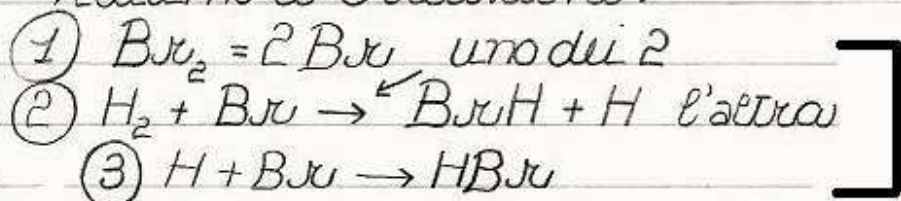 ① Br₂ = 2 Br uno dei 2
② H₂ + Br → BrH + H l'altra
③ H + Br → HBr